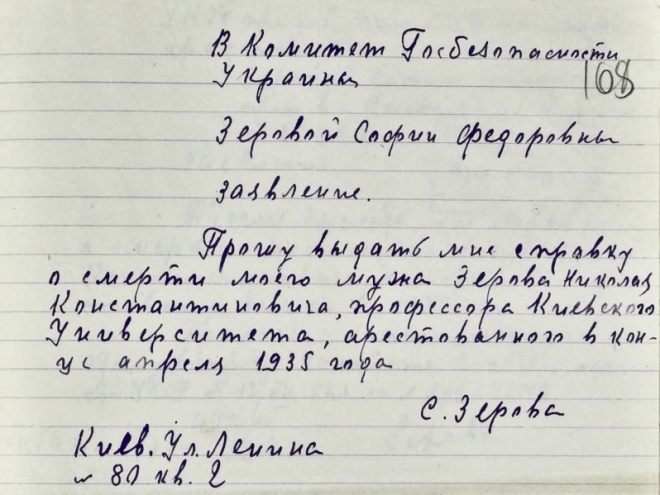 В Комитет Госбезопасности
Украины
168
Зеровой Софии Федоровны
заявление.
Прошу выдать мне справку
о смерти моего мужа Зерова Николая
Константиновича, профессора Киевского
Университета, арестованного в кон-
це апреля 1935 года
С. Зерова
Киев. Ул. Ленина
№ 80 кв. 2